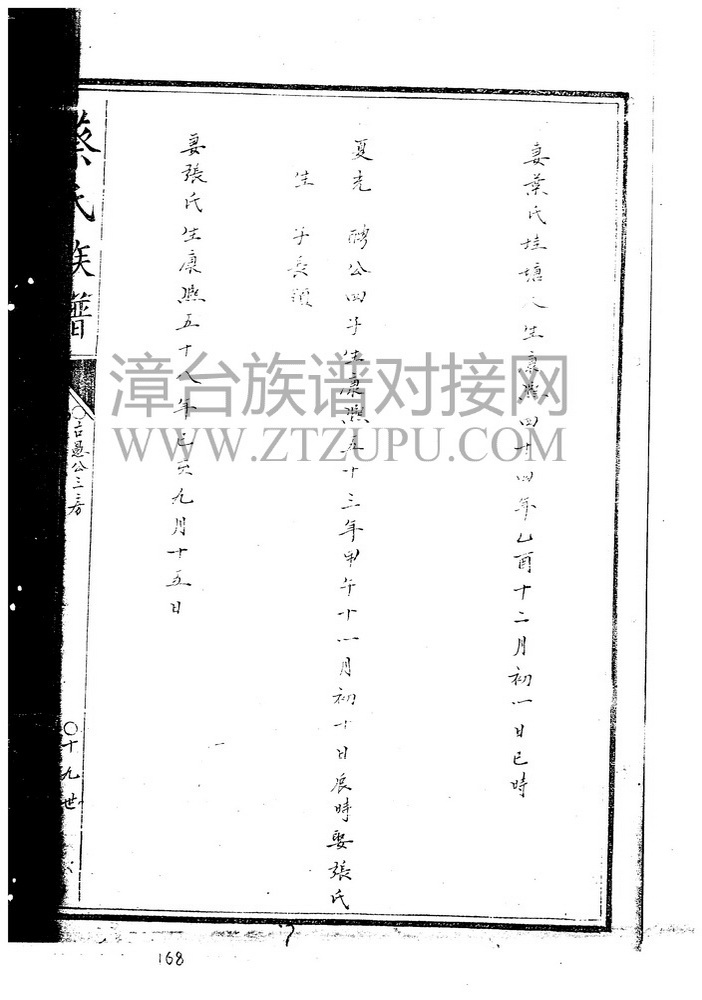 妻葉氏 塘人生康熙四十四年乙酉十二月初一日巳時
夏光 公四子生康熙五十三年甲午十一月初十日辰時娶張氏
生 子長
妻張氏生康熙五十八年己亥九月十五日
蔡氏族譜
○古愚公三房
○十九世
168
漳台族谱对接网
WWW.ZTZUPU.COM